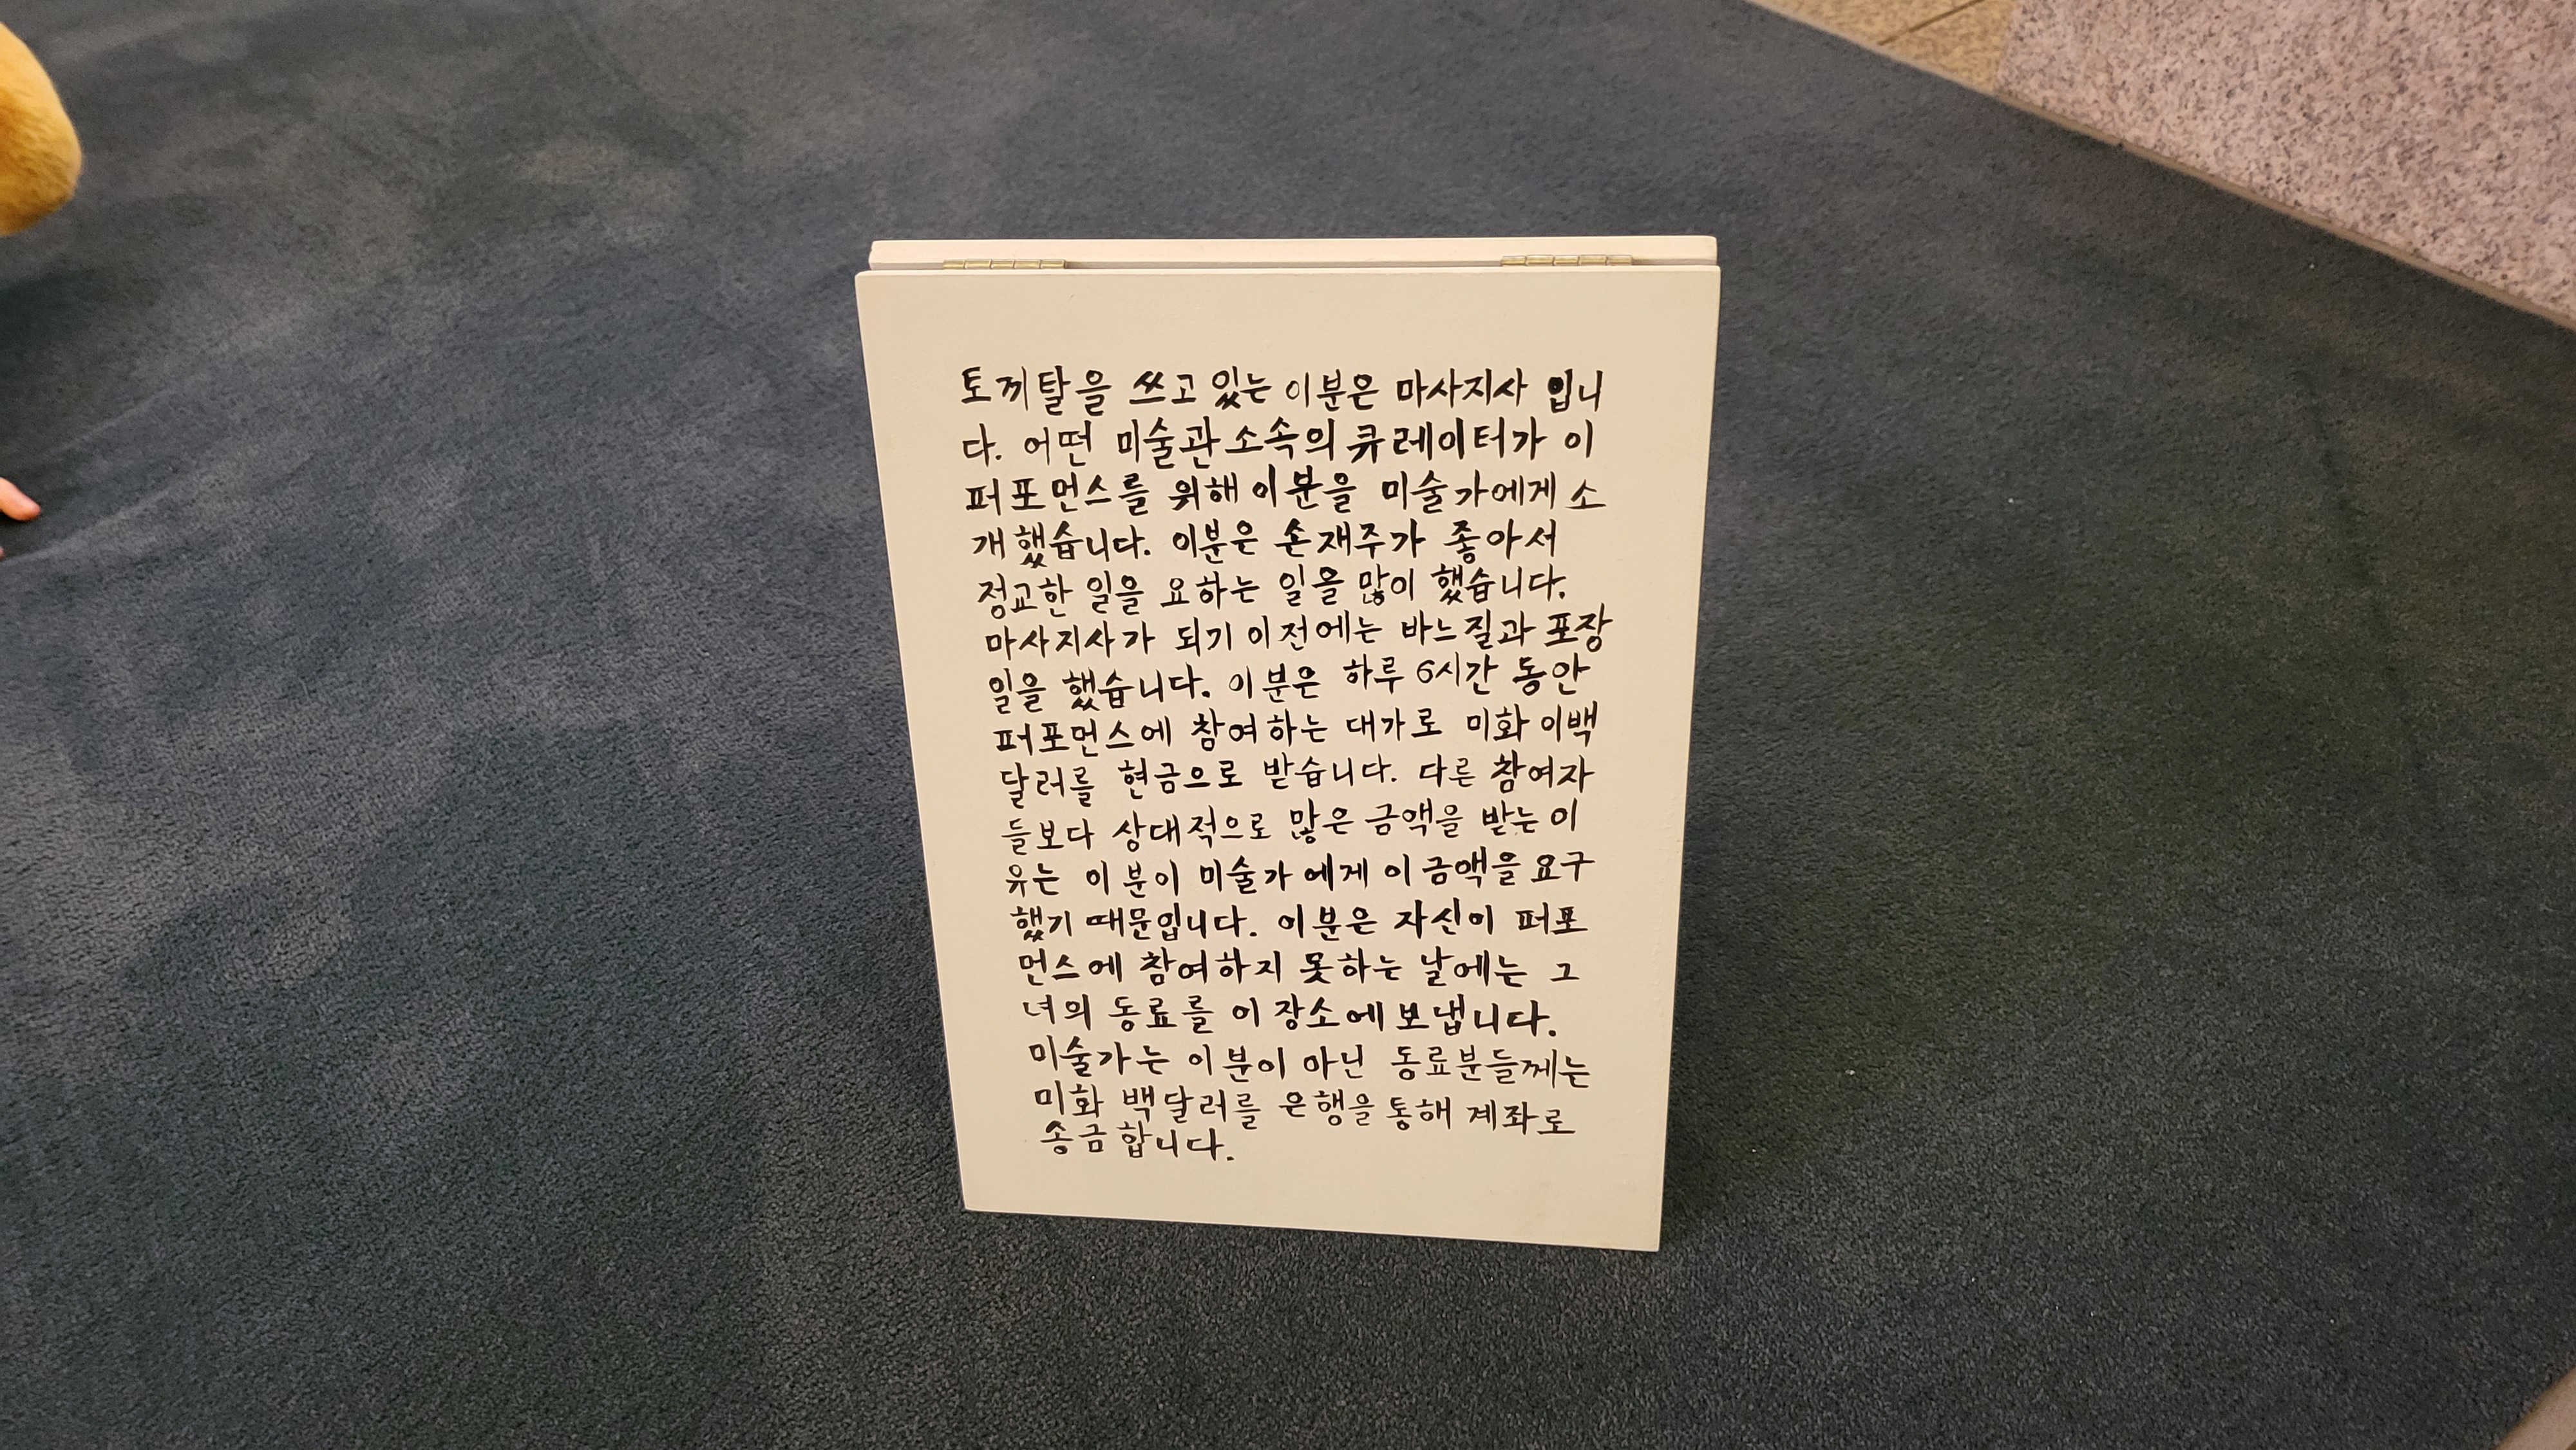 토끼탈을 쓰고 있는 이분은 마사지사 입니
다. 어떤 미술관 소속의 큐레이터가 이
퍼포먼스를 위해 이분을 미술가에게 소
개했습니다. 이분은 손재주가 좋아서
정교한 일을 요하는 일을 많이 했습니다.
마사지사가 되기 이전에는 바느질과 포장
일을 했습니다. 이분은 하루 6시간 동안
퍼포먼스에 참여하는 대가로 미화 이백
달러를 현금으로 받습니다. 다른 참여자
들보다 상대적으로 많은 금액을 받는 이
유는 이분이 미술가에게 이 금액을 요구
했기 때문입니다. 이분은 자신이 퍼포
먼스에 참여하지 못하는 날에는 그
녀의 동료를 이 장소에 보냅니다.
미술가는 이분이 아닌 동료분들께는
미화 백달러를 은행을 통해 계좌로
송금합니다.